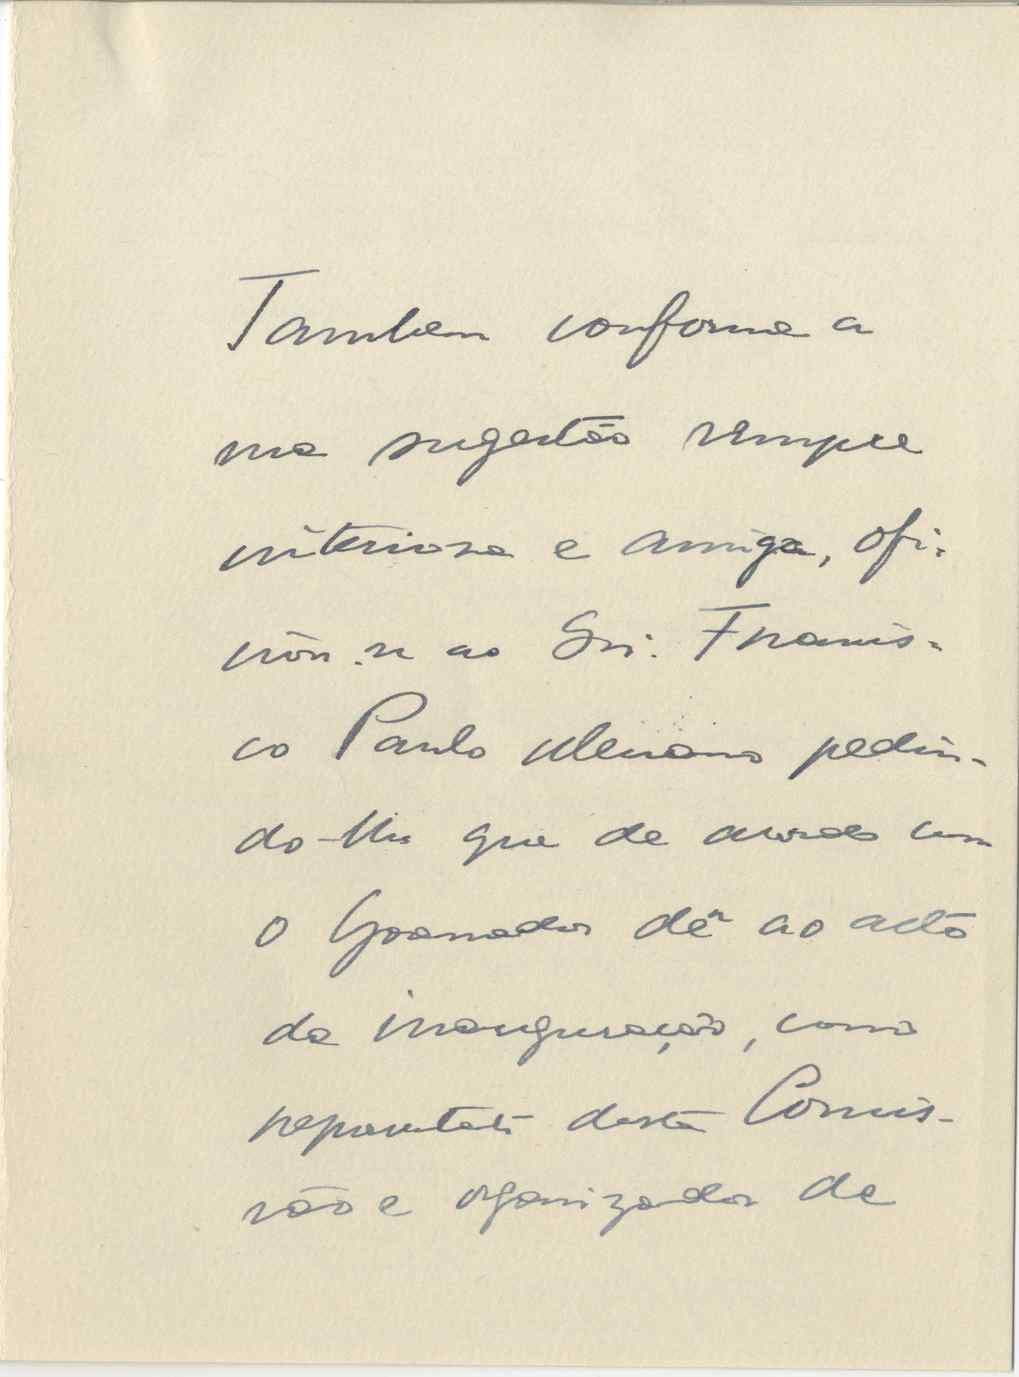 Tambem conforme a
sua sugestão sempre
criteriosa e amiga, ofi-
ciou-se ao Snr. Francis-
co Paulo Menano pedin-
do-lhe que de acordo com
o Governador dê ao acto
da inauguração, como
representante desta Comis-
são e organizador de